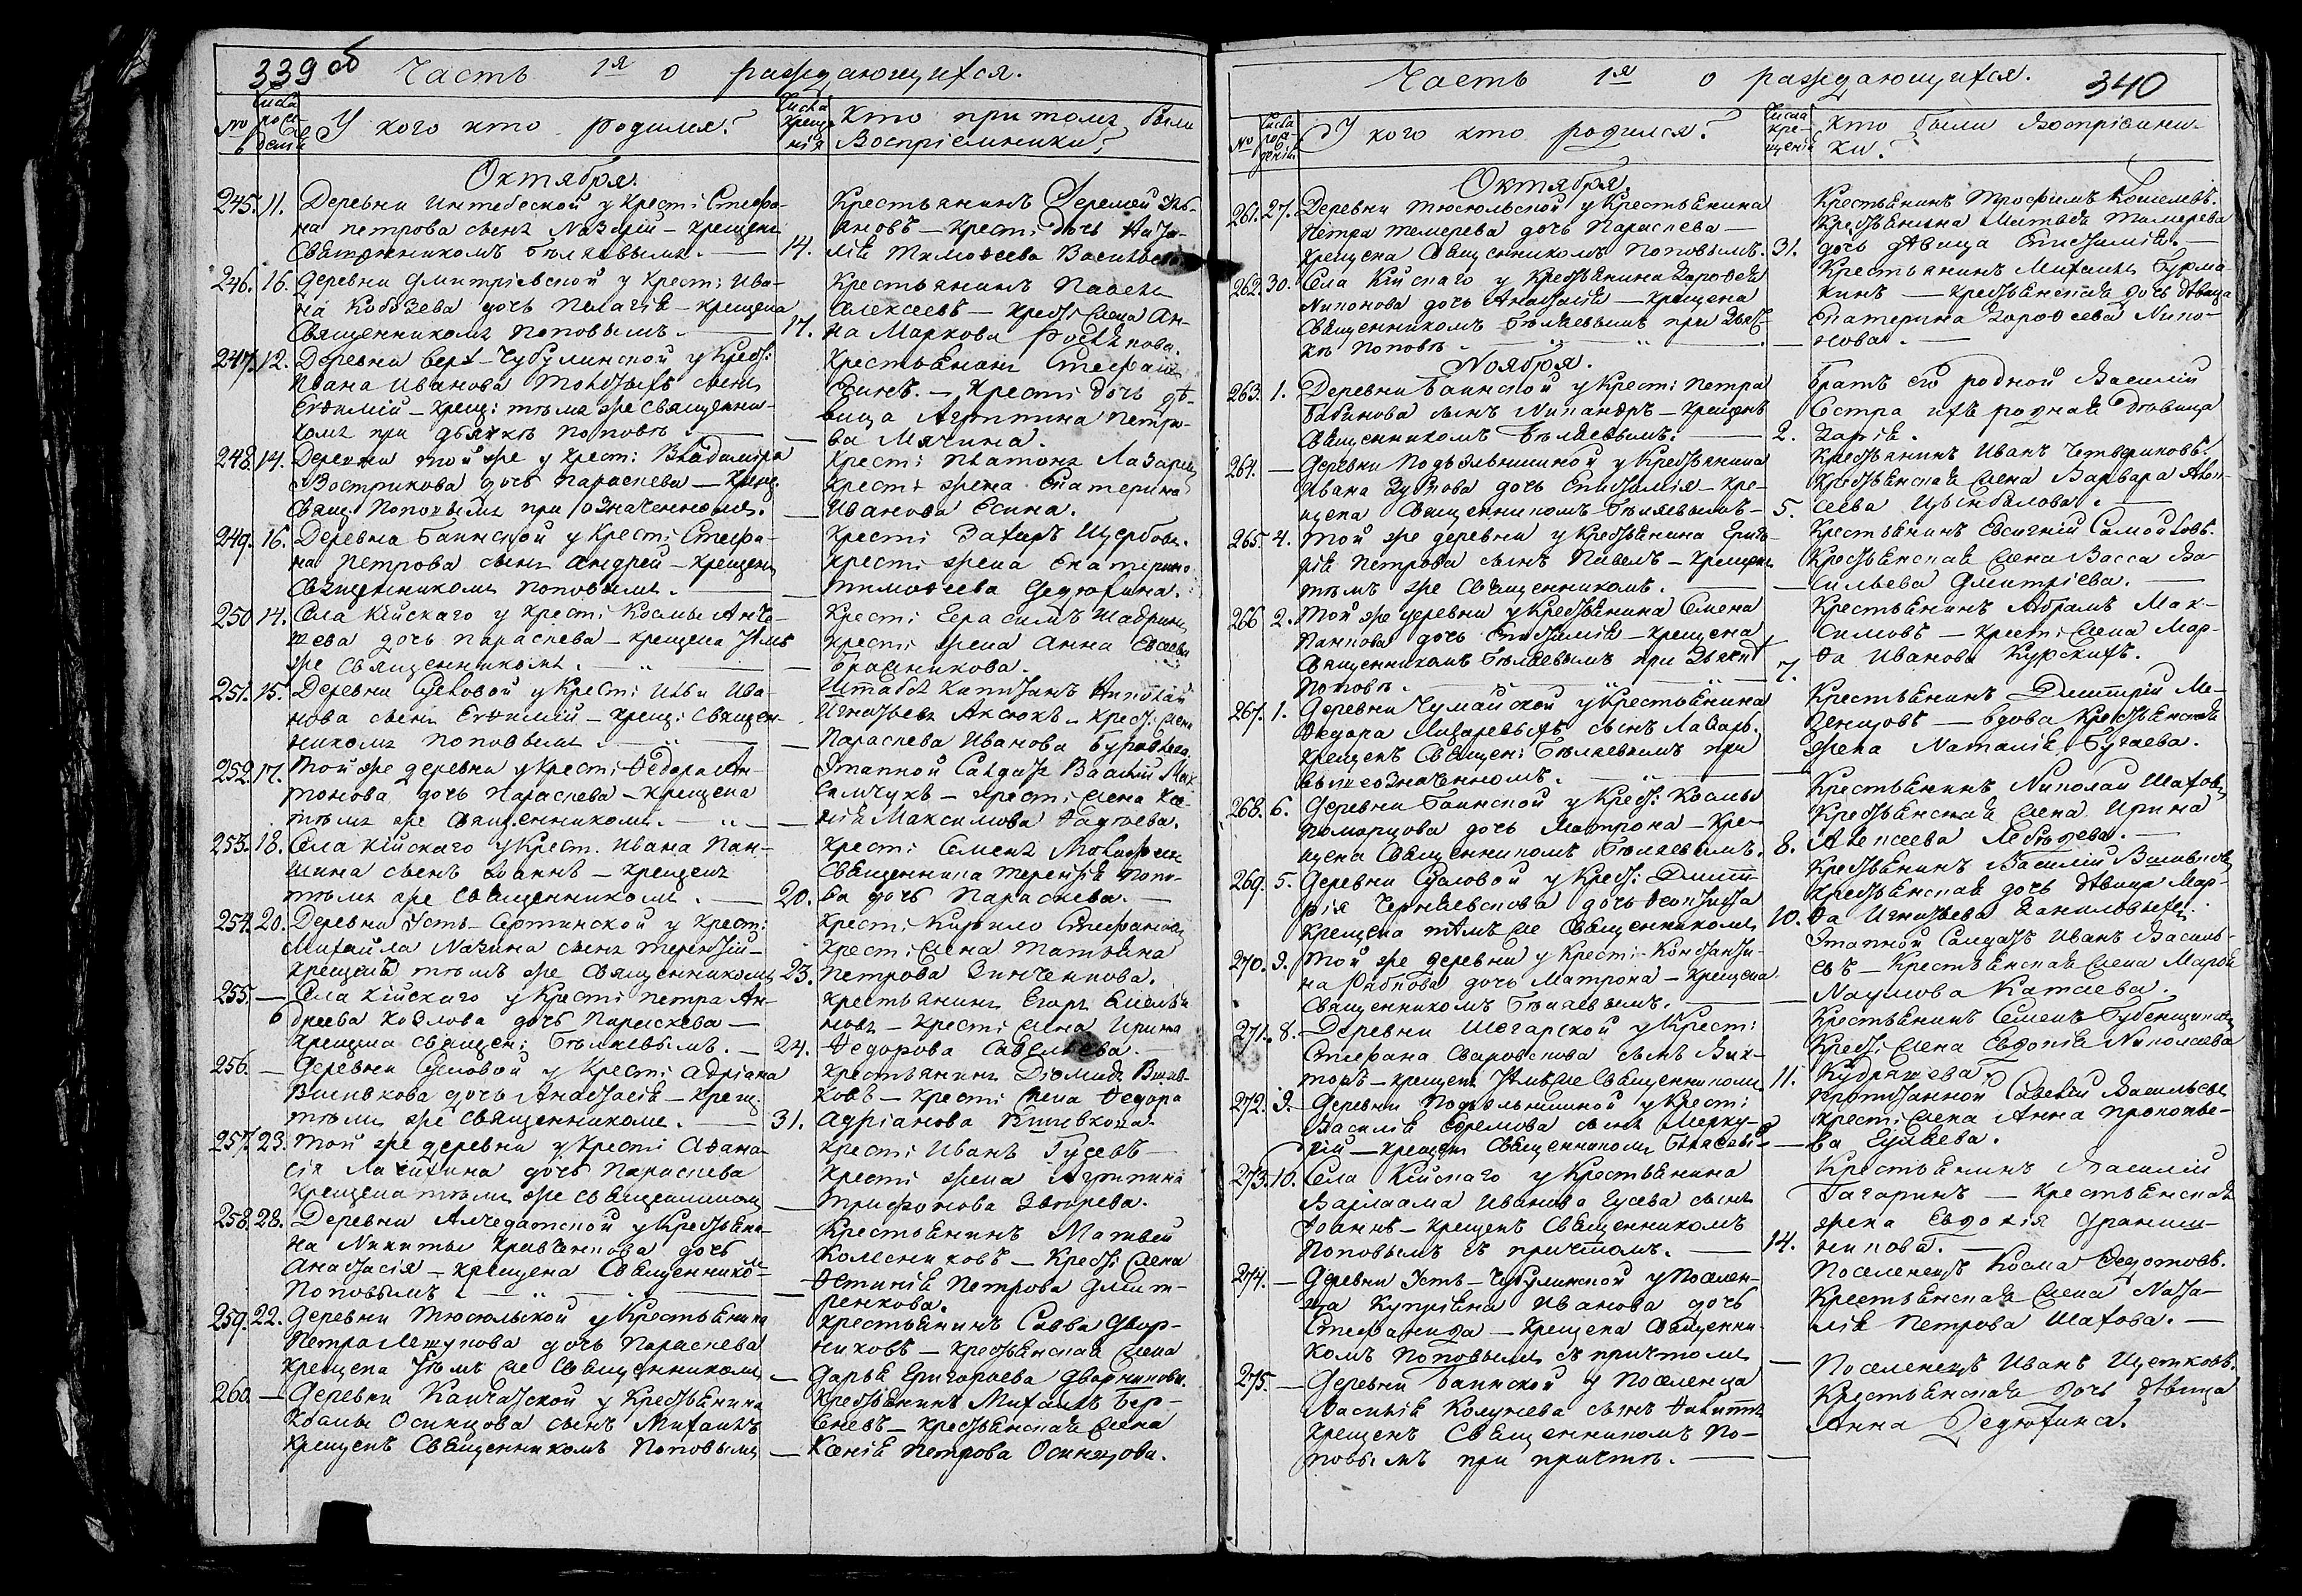 339 об Часть 1я о раждающихся.
№ Числа рождения У кого кто родился? Числа крещения Кто при томъ были
Воспріемники?
Октября.
245. 11. Деревни Интебеской у крест: Стефа-
на Петрова сынъ Назарій - крещенъ
Священникомъ Бѣляевымъ. 14.
Крестьянинъ Еремей
- крест: дочь Ната-
лія Тимоѳеева
246. 16. Деревни Дмитріевской у крест: Ива-
на Кобзева дочь Пелагія - крещена
Священникомъ Поповымъ. 17.
Крестьянинъ Павелъ
Алексеевъ - крест: жена Ан-
на Маркова
247. 12. Деревни Верх-Чубулинской у крест:
Ивана Иванова сынъ
Евѳимій - крещ: тѣмъ же священни-
комъ при дьячкѣ Поповѣ. —
Крестьянинъ Стефанъ
- Крест: дочь дѣ-
вица Агриппина Петро-
ва Мячина.
248. 14. Деревни той же у крест: Владимира
Вострикова дочь Параскева - крещ.
Свящ: Поповымъ при означенномъ. —
Крест: Платонъ Лазарев
крест: жена Екатерина
Иванова Есина.
249. 16. Деревни Баимской у крест: Стефа-
на Петрова сынъ Андрей - крещенъ
Священникомъ Поповымъ. —
Крест: Захаръ Щербовъ.
крест: жена Екатерина
Тимоѳеева Дедюхина.
250. 14. Села Кійскаго у крест: Космы
дочь Параскева - крещена тѣмъ
же Священникомъ. —
Крест: Герасимъ Шадринъ
крест: жена Анна
Брашникова.
251. 15. Деревни Сусловой у крест: Ильи Ива-
нова сынъ Евѳимій - крещ: Священ-
никомъ Поповымъ. —
Штабсъ Капитанъ Николай
Игнатьевъ - крест: жена
Параскева Иванова
252. 17. Той же деревни у крест: Ѳедора Ан-
тонова дочь Параскева - крещена
тѣмъ же Священникомъ. —
Этапной Салдатъ Василій
- крест: жена Ксе-
нія Максимова Фадѣева.
253. 18. Села Кійскаго у крест. Ивана Пан-
шина сынъ Іоаннъ - крещенъ
тѣмъ же Священникомъ. 20.
Крест: Семенъ
Священника Терентія Попо-
ва дочь Параскева.
254. 20. Деревни Усть-Сертинской у крест:
Михайла Назина сынъ Терентій -
крещенъ тѣмъ же Священникомъ 23.
Крест: Кирило Стефановъ
крест: жена Татьяна
Петрова Зинченкова.
255. — Села Кійскаго у крест: Петра Ан-
дреева Козлова дочь Параскева -
крещена Священ: Бѣляевымъ. 24.
Крестьянинъ Егоръ Емелья-
новъ - крест: жена Ирина
Ѳедорова Савельева.
256. — Деревни Сусловой у крест: Адріана
Вшивкова дочь Анастасія - крещ.
тѣмъ же Священникомъ. 31.
Крестьянинъ Діомидъ Вшив-
ковъ - крест: жена Ѳедора
Адріанова Вшивкова.
257. 23. Той же деревни у крест: Аѳана-
сія дочь Параскева
крещена тѣмъ же Священникомъ —
Крест: Иванъ Гусевъ
крест: жена Агриппина
Трифонова
258. 28. Деревни Алчедатской у крестьяни-
на Никиты Кравченкова дочь
Анастасія - крещена Священникомъ
Поповымъ. —
Крестьянинъ Матвей
Колесниковъ - крест: жена
Фетинія Петрова Дмит-
ренкова.
259. 22. Деревни Тюсюльской у крестьянина
Петра дочь Параскева
крещена тѣмъ же Священникомъ —
Крестьянинъ Савва Двор-
никовъ - крестьянская жена
Дарья Григорьева Дворникова.
260. — Деревни Камчатской у крестьянина
Космы Осинцова сынъ Михаилъ
крещенъ Священникомъ Поповымъ —
Крестьянинъ Михаилъ Бер-
сневъ - крестьянская жена
Ксенія Петрова Осинцова.
Часть 1я о раждающихся. 340
№ Числа рожденія У кого кто родился? Числа крещенія Кто были Воспріемни-
ки?
Октября.
261. 27. Деревни Тюсюльской у крестьянина
Петра Темерева дочь Параскева -
крещена Священникомъ Поповымъ. 31.
Крестьянинъ Трофимъ Кошелевъ.
Крестьянина Матвея Темерева
дочь дѣвица Епистимія.
262. 30. Села Кійскаго у крестьянина Дороѳея
Никонова дочь Анастасія - крещена
Священникомъ Бѣляевымъ при дьяч-
кѣ Поповѣ. —
Крестьянинъ Михаилъ Бурма-
кинъ - крестьянская дочь дѣвица
Екатерина Дороѳеева Нико-
нова.
Ноября.
263. 1. Деревни Баимской у крест: Петра
Бабинова сынъ Никандръ - крещенъ
Священникомъ Бѣляевымъ. 2.
Братъ его родной Василій
Сестра ихъ родная дѣвица
Дарія.
264. — Деревни Подъельничной у крестьянина
Ивана Зубкова дочь Епистимія - кре-
щена Священникомъ Бѣляевымъ - 5.
Крестьянинъ Иванъ Четвериковъ.
Крестьянская жена Варвара Алек-
сеева Цынбалова.
265. 4. Той же деревни у крестьянина Григо-
рія Петрова сынъ Павелъ - крещенъ
тѣмъ же Священникомъ. —
Крестьянинъ Евсигній Самойловъ.
Крестьянская жена Васса Ва-
сильева Дмитріева.
266. 2. Той же деревни у крестьянина Семена
Панкова дочь Епистимія - крещена
Священникомъ Бѣляевымъ при дьячкѣ
Поповѣ. 7.
Крестьянинъ Абрамъ Мак-
симовъ - крест: жена Мар-
ѳа Иванова Курскихъ.
267. 1. Деревни Чумайской у крестьянина
Ѳедора сынъ Лазарь.
крещенъ Священ: Бѣляевымъ при
вышеозначенномъ. —
Крестьянинъ Дмитрій Ме-
зенцовъ - вдова крестьянская
жена Наталія Бугаева.
268. 6. Деревни Баимской у крест: Космы
Комарцова дочь Матрона - кре-
щена Священникомъ Бѣляевымъ. 8.
Крестьянинъ Николай Шаховъ
Крестьянская жена Ирина
Алексеева Лебедева.
269. 5. Деревни Сусловой у крест: Дмит-
рія Черняевскова дочь Ѳеоктиста
крещена тѣмъ же Священникомъ 10.
Крестьянинъ Василій Вшивковъ
Крестьянская дочь дѣвица Мар-
ѳа Игнатьева Даниловыхъ.
270. 9. Той же деревни у крест: Константи-
на Рябкова дочь Матрона - крещена
Священникомъ Бѣляевымъ. —
Этапной Салдатъ Иванъ Василь-
евъ - Крестьянская жена Марья
Наумова Катаева.
271. 8. Деревни Шегарской у крест:
Стефана Сваровскова сынъ Вик-
торъ - крещенъ тѣмъ же Священникомъ 11.
Крестьянинъ Семенъ Губенщиковъ
Крест: жена Евдокія Николаева
Кудряшева.
272. 9. Деревни Подъельничной у крест:
Василія Ефремова сынъ Мерку-
рій - крещенъ Священникомъ Бѣляевымъ —
Савелій Васильевъ
крест: жена Анна Прокопье-
ва Гуляева.
273. 10. Села Кійскаго у крестьянина
Варлаама Иванова Гусева сынъ
Іоаннъ - крещенъ Священникомъ
Поповымъ съ причтомъ. 14.
Крестьянинъ Василій
Гагаринъ - крестьянская
жена Евдокія Драниш-
никова.
274. — Деревни Усть-Чубулинской у поселен-
ца Купріяна Иванова дочь
Стефанида - крещена Священни-
комъ Поповымъ съ причтомъ —
Поселенецъ Косма Федотовъ.
Крестьянская жена Ната-
лія Петрова Шахова.
275. — Деревни Баимской у поселенца
Василія Колунева сынъ Филиппъ
крещенъ Священникомъ По-
повымъ при причтѣ. —
Поселенецъ Иванъ Щетковъ.
Крестьянская дочь дѣвица
Анна Дедюхина.